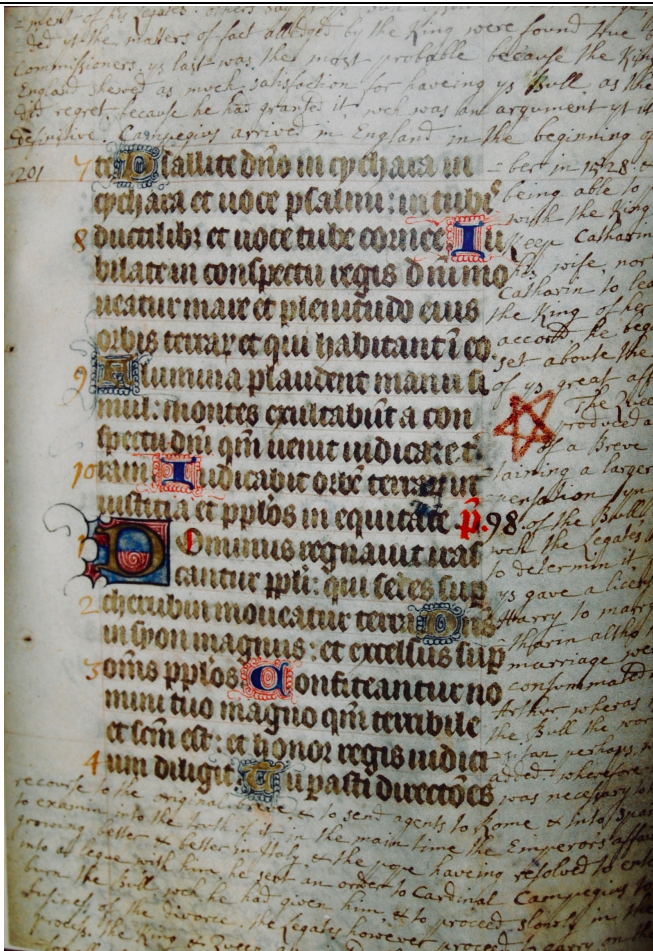 ded yt the matters of fact alledged by the King were found true
Commissioners, ys last was the most probable because the King
England shewed as much satisfaction for haveing ys Bull, as the
did regret, because he had granted it, wch was an argument yt it
definitive. Campegius arrived in England in the beginning
201
7 te Psallite dño in cychara in
cychara et uoce psalmi: in tubis
8 ductilibz et uoce tube cornee Iu
bilate in conspectu regis dñi mo
ueatur mare et plenitudo eius
orbis terrar et qui habitant ī eo
9 Flumina plaudent manu si
mul: montes exultabūt a con
spectu dñi qm̄ uenit iudicare t̄
10 ram Iudicabit orbē terrar in
iusticia et pplōs in equitate p̄. 98
1 Dominus regnauit iras
cantur ppli: qui sedes sup
2 cherubin moueatur terra Dñs
in syon magnus: et excelsus sup
3 om̄s pplōs Confiteantur no
mini tuo magno qm̄ terribile
et sc̄m est: et honor regis iudici
4 um diligit Tu parasti directōes
= ber in 1528.
being able to
with the King
keep Catharin
his wife, nor
Catharin to lea
the King of her
accord, he beg
set aboute the
of ys great aff
The Quee
produced a
of a Breve
taining a larger
pensation
of the Bull
wch the Legates
to determin it.
ys gave a licen
Harry to marry
tharin altho
marriage
consommated
Arthur wheras
the Bull the wor
perhaps,
added: wherefore
was necessary to
recourse to the original Breve & to send agents to Rome & into Spain
to examin into the truth of it, in the main time the Emperors affairs
growing better & better in Italy & the pope haveing resolved to ent
into a legue with him, he sent an order to Cardinal Campegius to
burn the Bull wch he had given him, & to proceed slowly in the
business of the divorce, the Legates however proceed
process, the King & Queen